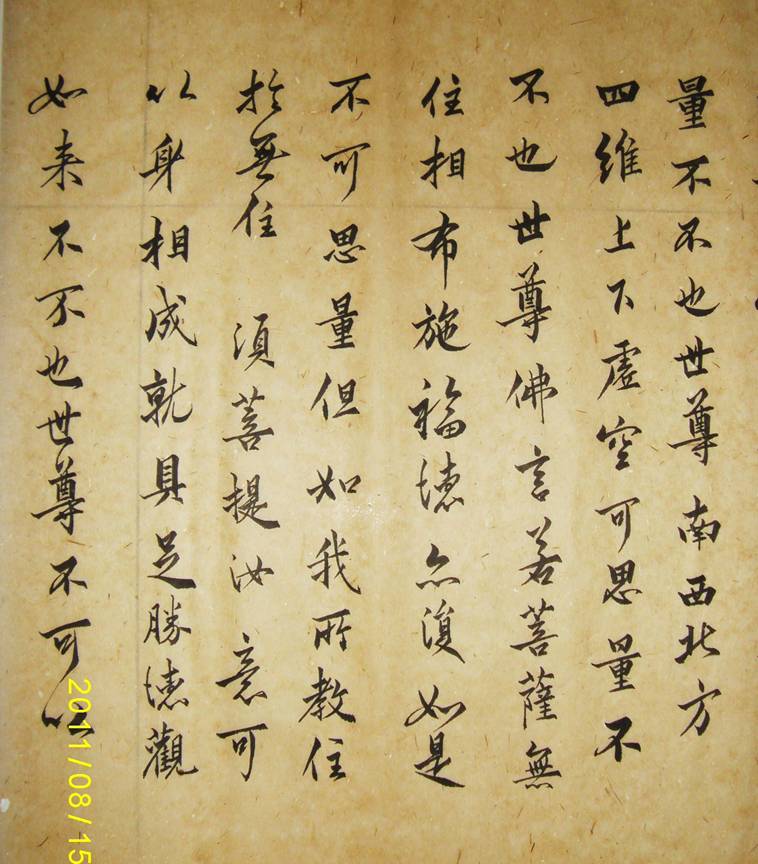 量不不也世尊南西北方
四維上下虛空可思量不
不也世尊佛言若菩薩無
住相布施福德亦復如是
不可思量但如我所教住
於無住 須菩提汝意可
以身相成就具足勝德觀
如来不不也世尊不可以
2011/08/15